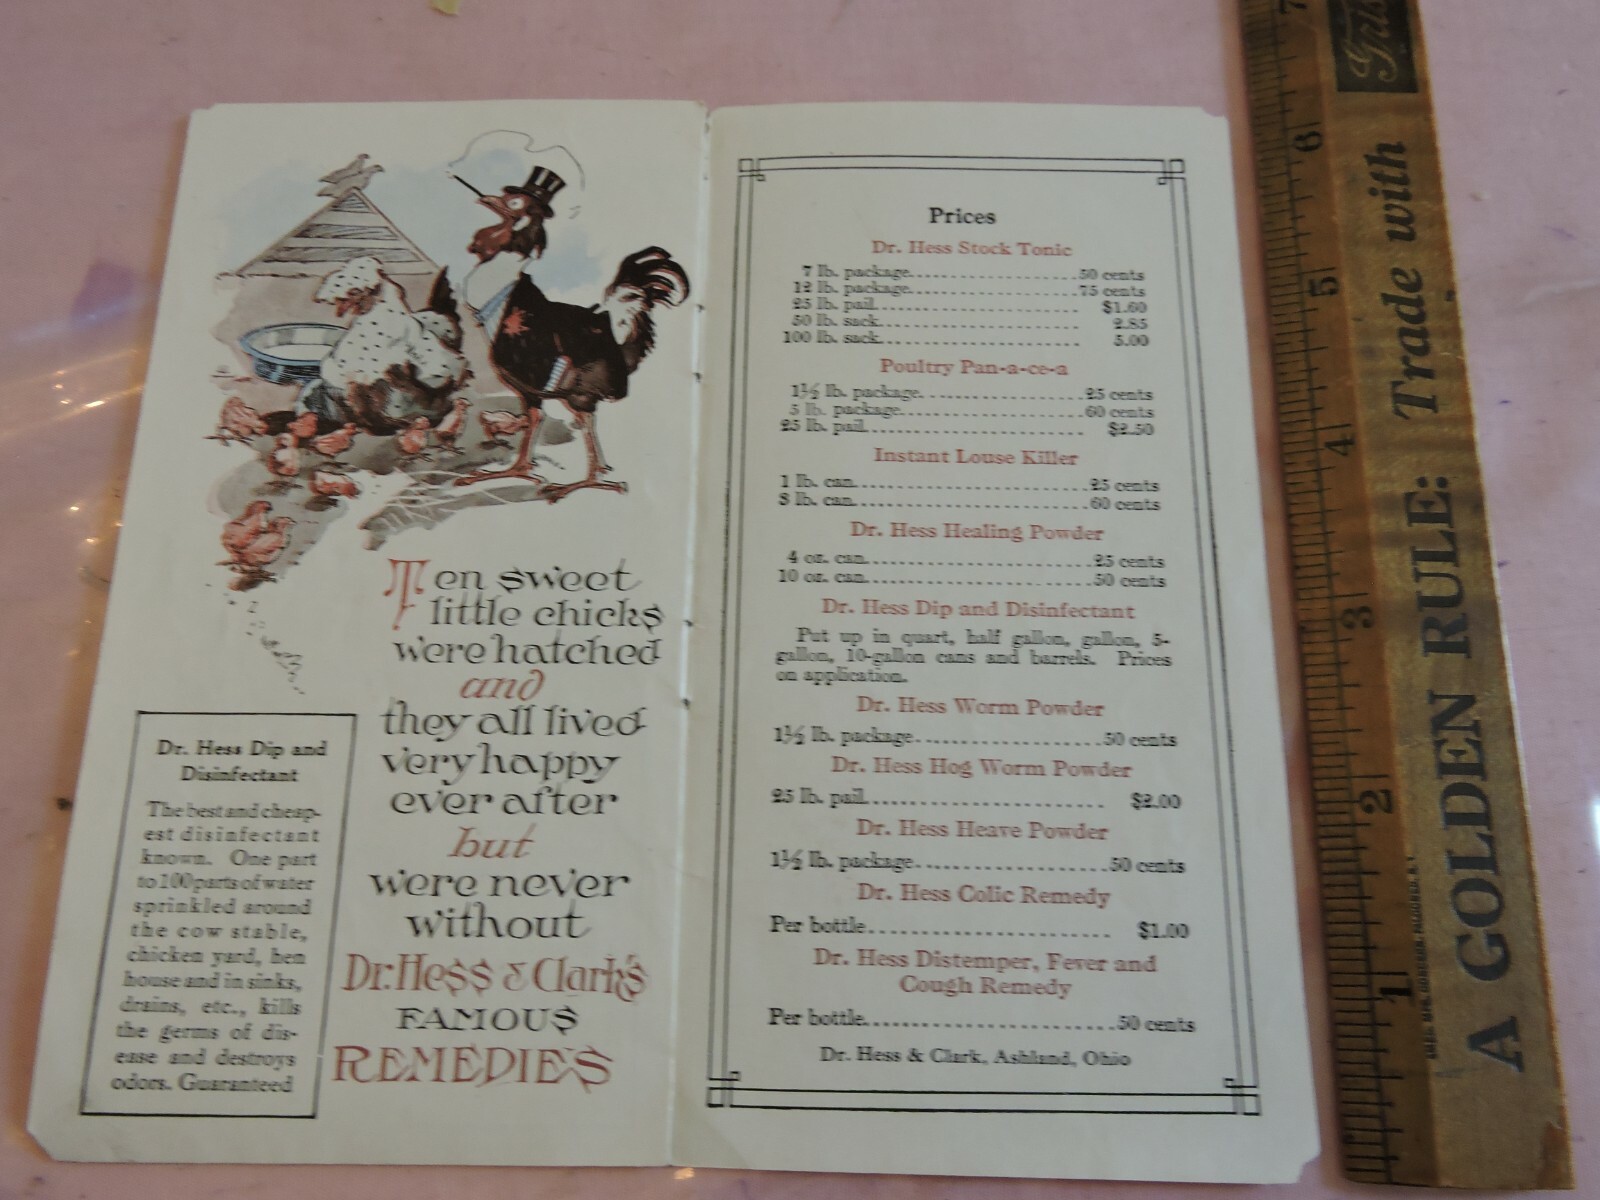 Ten sweet
little chicks
were hatched
and
they all lived
very happy
ever after
but
were never
without
Dr. Hess & Clark's
FAMOUS
REMEDIES
Dr. Hess Dip and
Disinfectant
The best and cheap-
est disinfectant
known. One part
to 100 parts of water
sprinkled around
the cow stable,
chicken yard, hen
house and in sinks,
drains, etc., kills
the germs of dis-
ease and destroys
odors. Guaranteed
Prices
Dr. Hess Stock Tonic
7 lb. package....................50 cents
12 lb. package....................75 cents
25 lb. pail.................... $1.60
50 lb. sack.................... 2.85
100 lb. sack.................... 5.00
Poultry Pan-a-ce-a
1½ lb. package....................25 cents
5 lb. package....................60 cents
25 lb. pail.................... $2.50
Instant Louse Killer
1 lb. can....................25 cents
3 lb. can....................60 cents
Dr. Hess Healing Powder
4 oz. can....................25 cents
10 oz. can....................50 cents
Dr. Hess Dip and Disinfectant
Put up in quart, half gallon, gallon, 5-
gallon, 10-gallon cans and barrels. Prices
on application.
Dr. Hess Worm Powder
1½ lb. package....................50 cents
Dr. Hess Hog Worm Powder
25 lb. pail.................... $2.00
Dr. Hess Heave Powder
1½ lb. package....................50 cents
Dr. Hess Colic Remedy
Per bottle.................... $1.00
Dr. Hess Distemper, Fever and
Cough Remedy
Per bottle....................50 cents
Dr. Hess & Clark, Ashland, Ohio
1 2 3 4 5 6 7
A GOLDEN RULE: Trade with